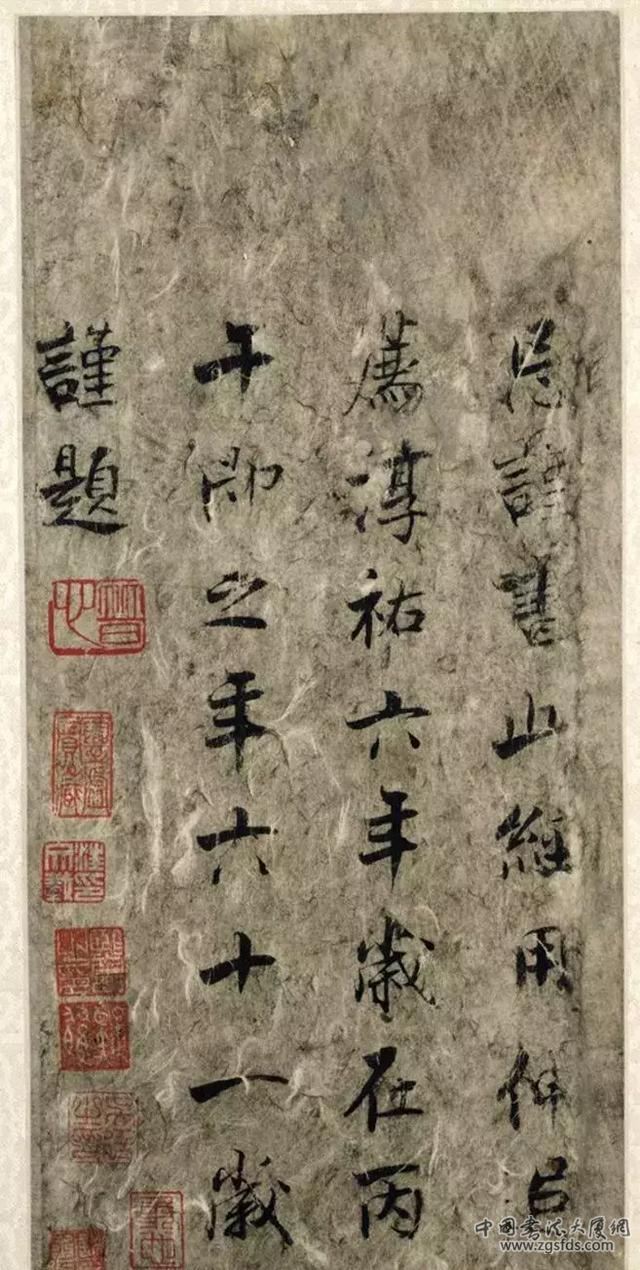 謹書此經用伸追
薦淳祐六年歲在丙
午即之年六十一歲
謹題
中国书法大厦網
www.zgsfds.com